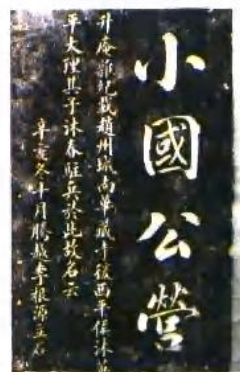 小國公營
升庵雜紀載趙州城南華藏寺後西平侯沐英
平大理其子沐春駐兵於此故名云
辛亥冬十月騰越李根源立石